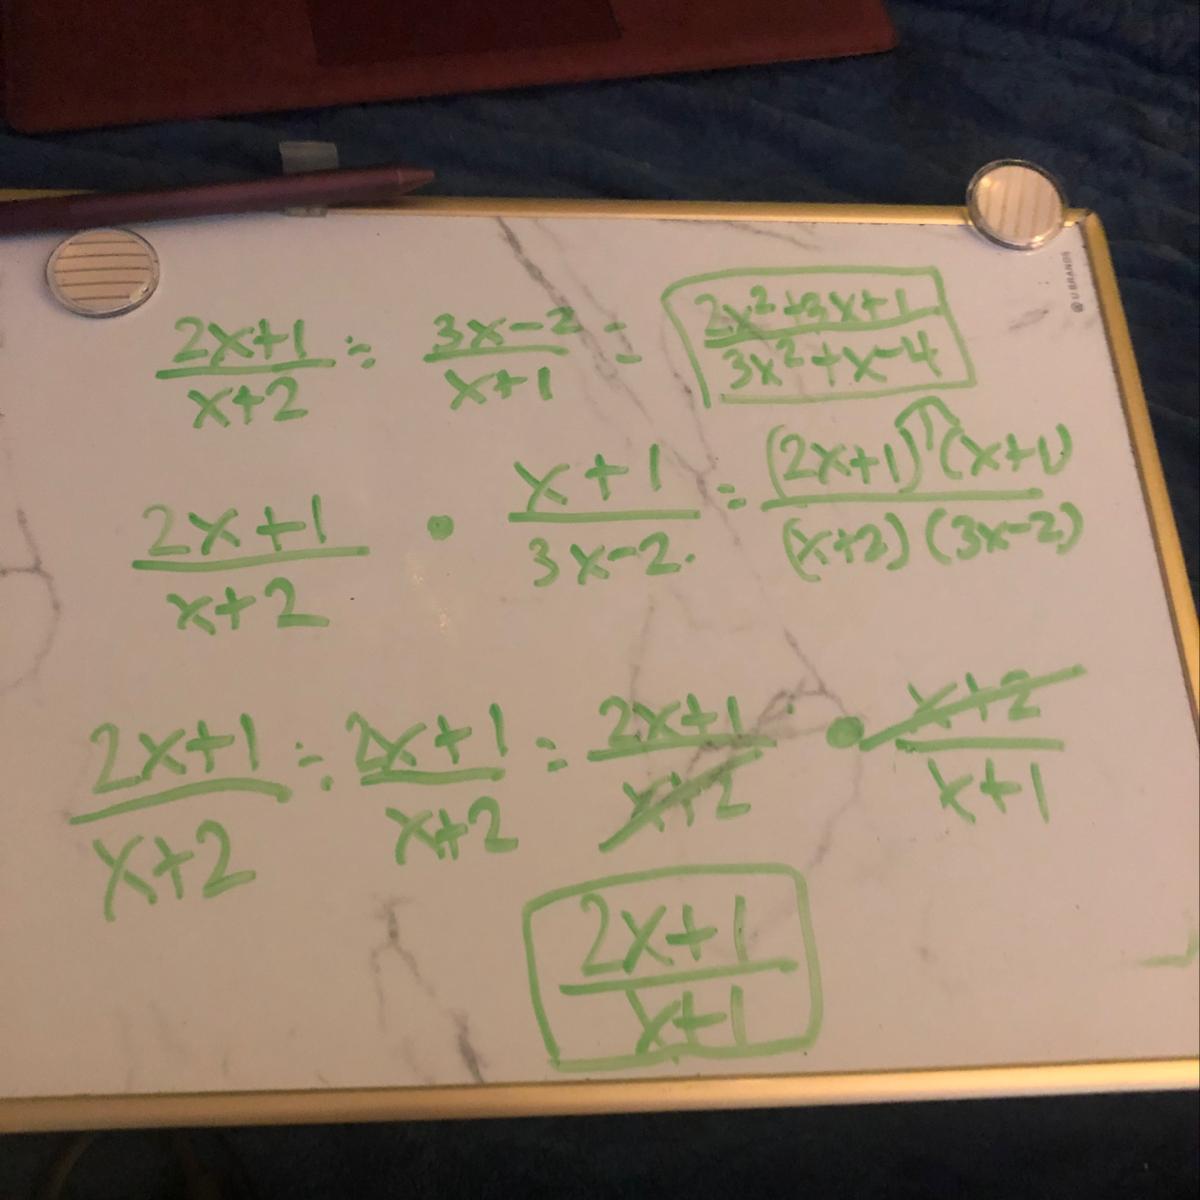 (2x+1)/(x+2) ÷ (3x-2)/(x+1) = (2x²+3x+1)/(3x²+x-4)
(2x+1)/(x+2) • (x+1)/(3x-2) = (2x+1)(x+1)/(x+2)(3x-2)
(2x+1)/(x+2) ÷ (2x+1)/(x+2) = (2x+1)/(x+2) • (x+2)/(x+1)
(2x+1)/(x+1)
U BRANDS